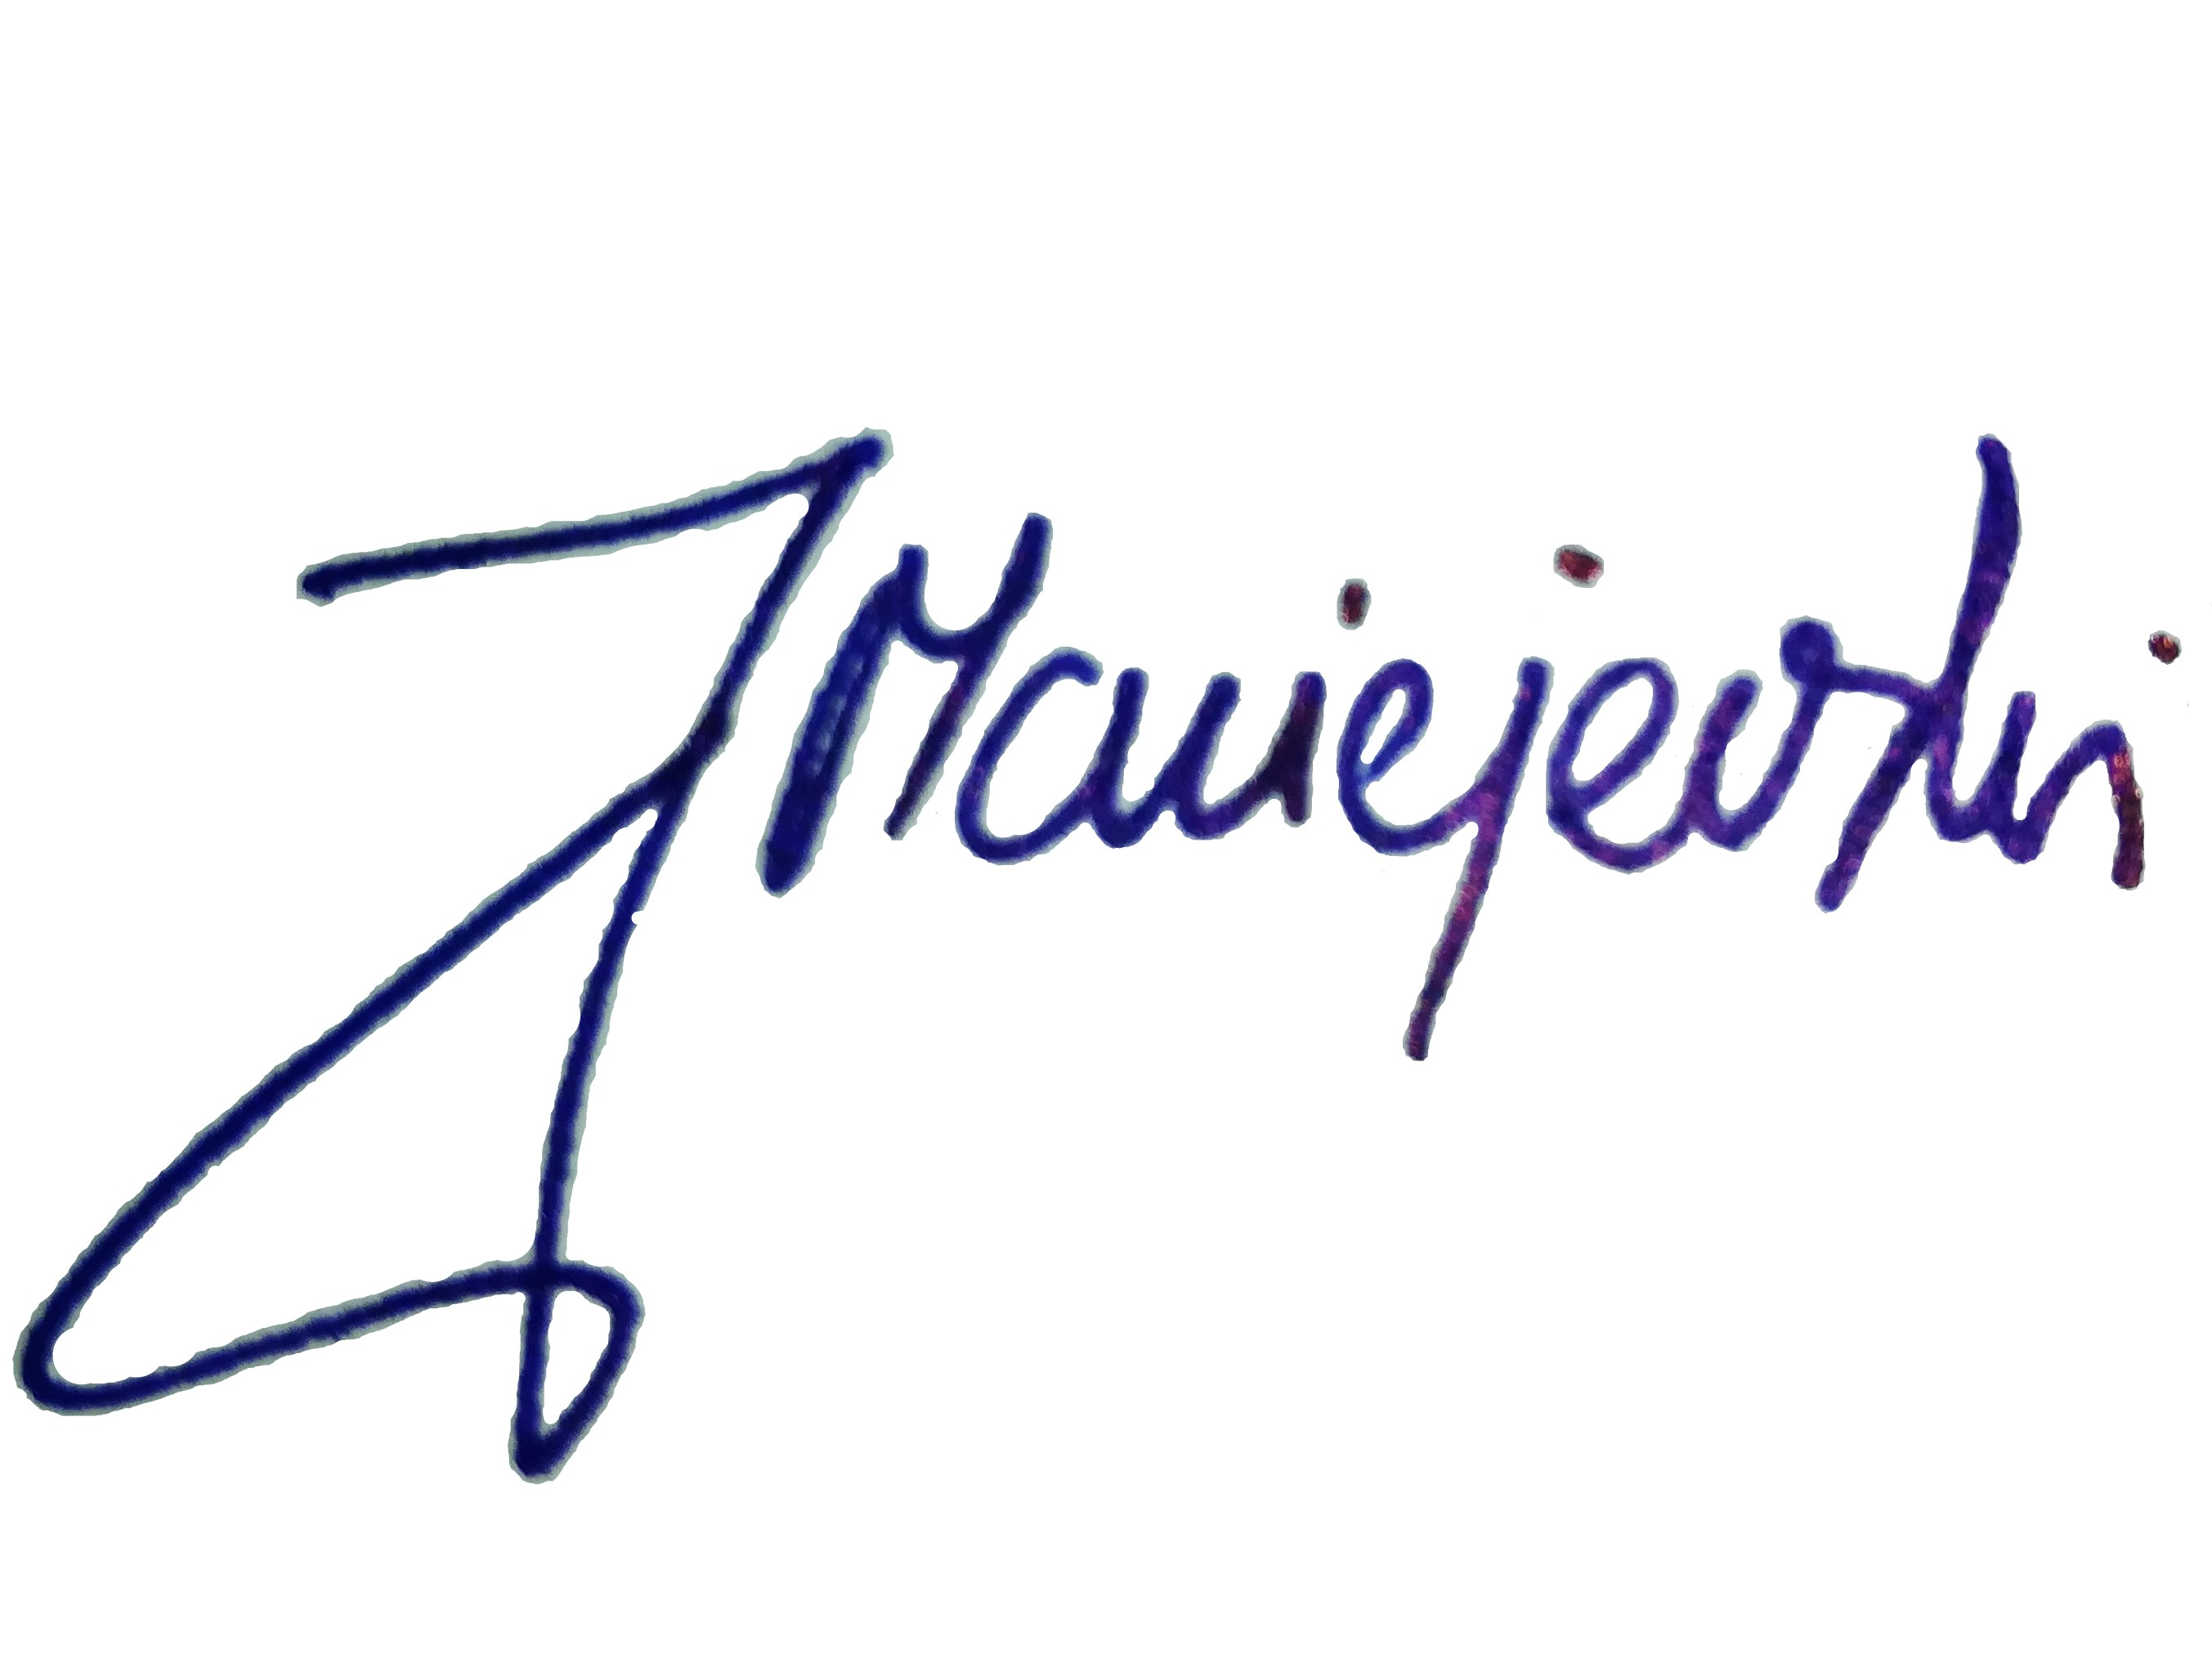 J Maciejewski